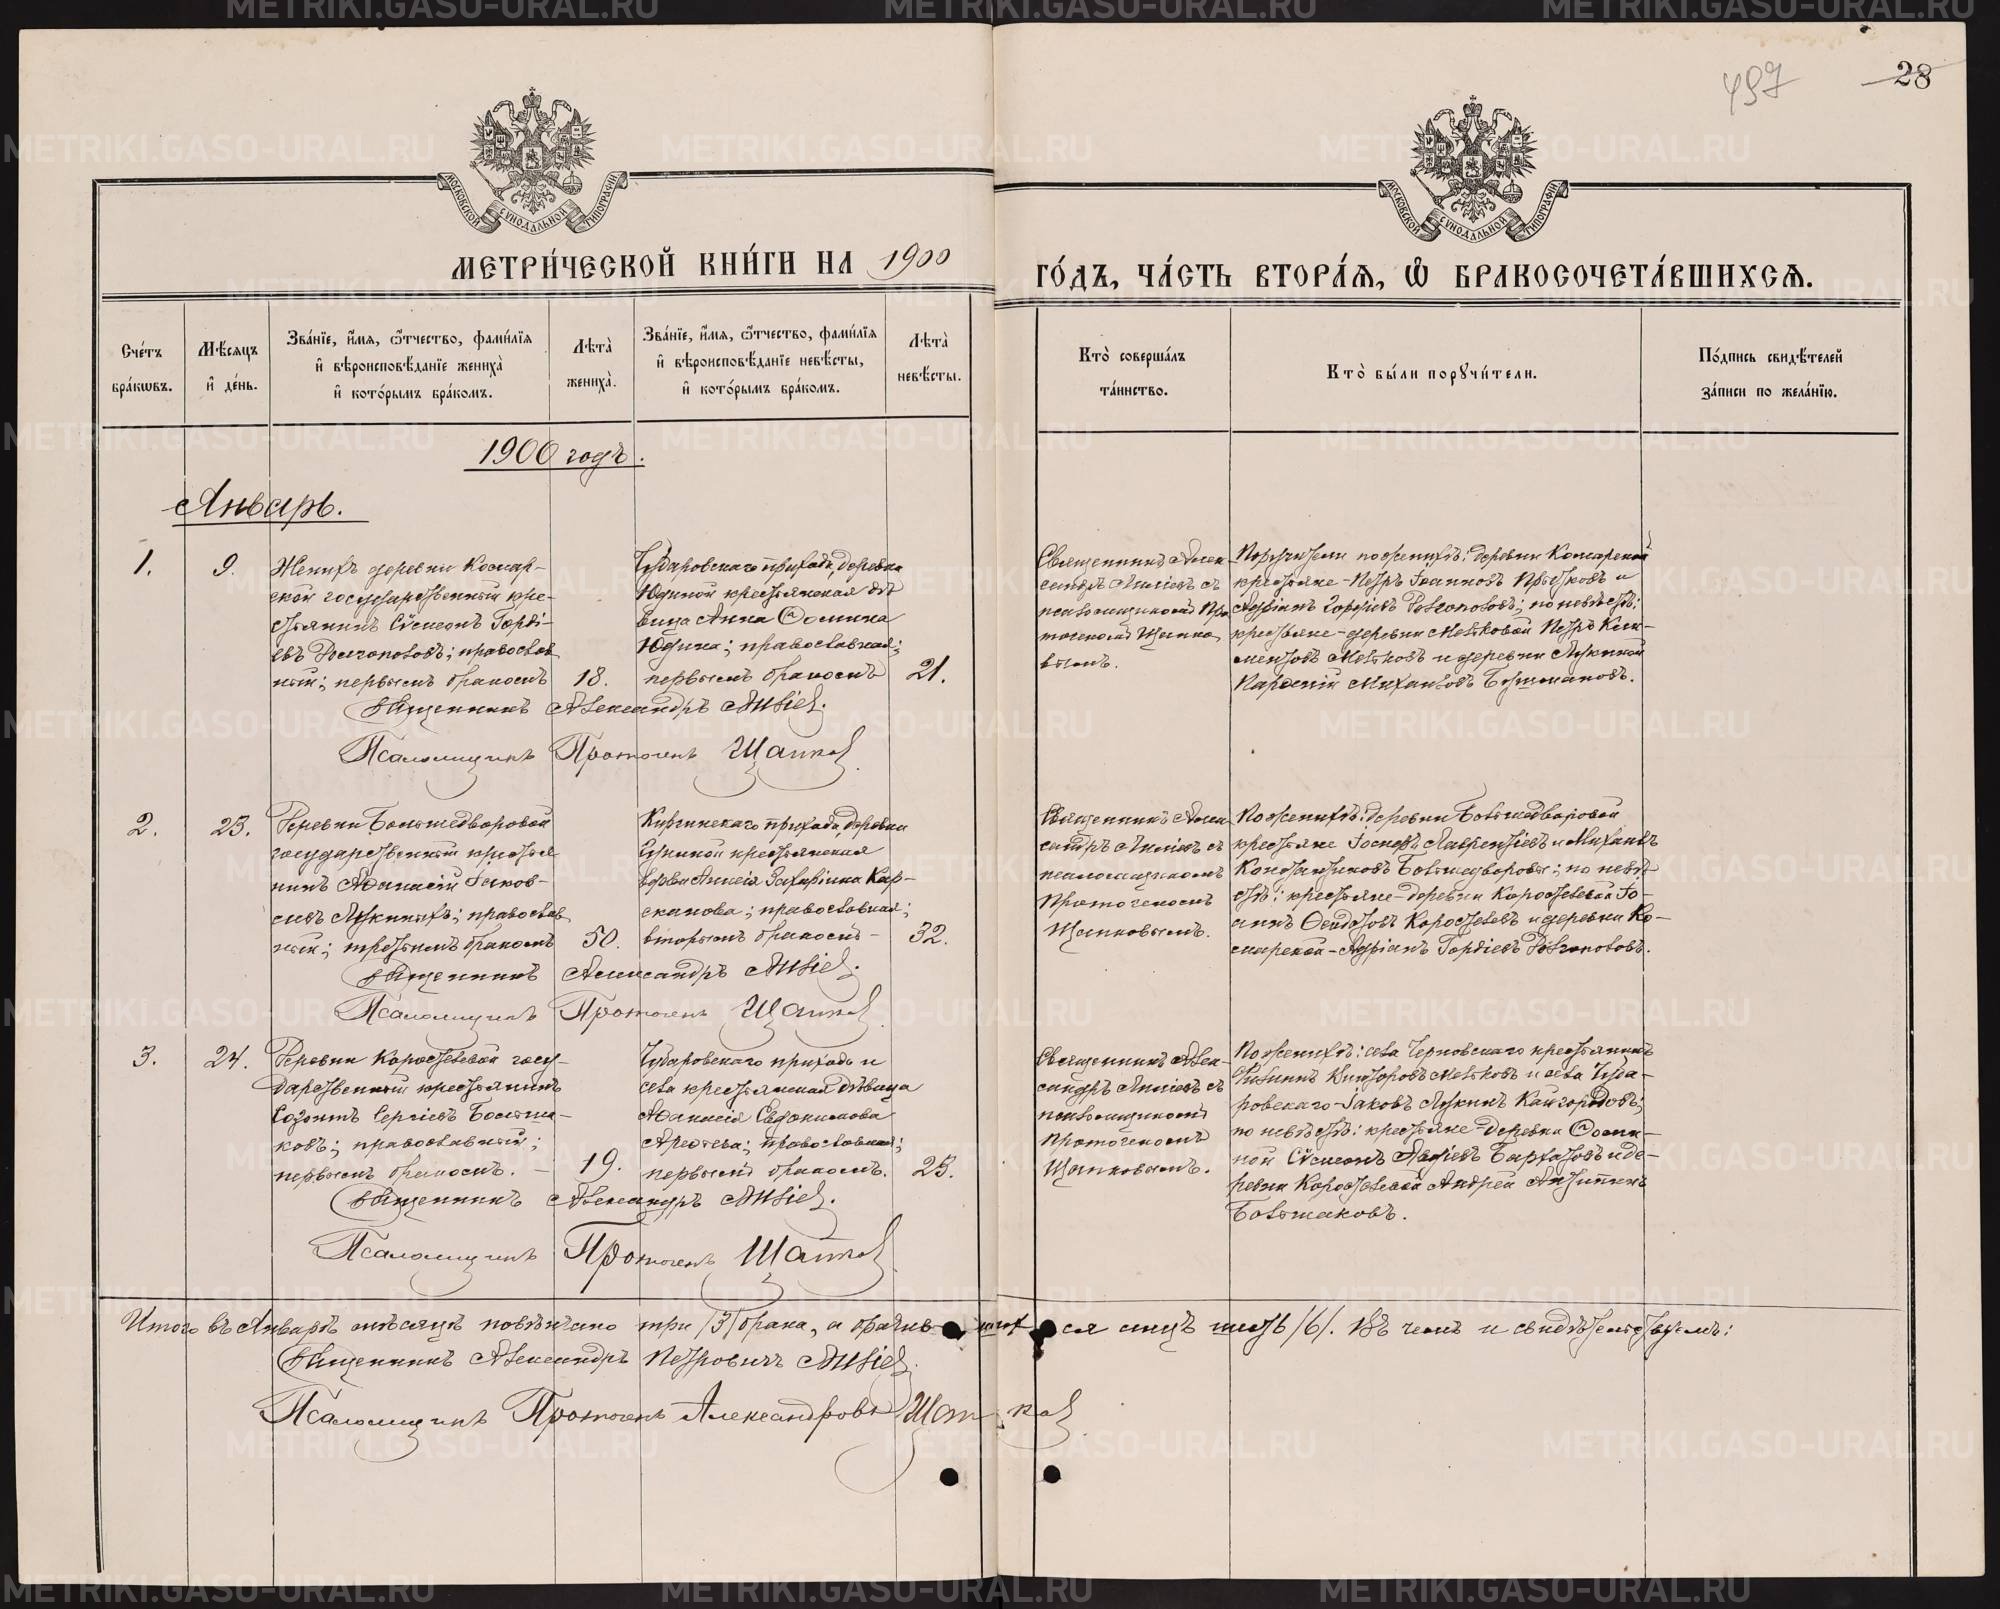 28
497
МОСКОВСКОЙ СѴНОДАЛЬНОЙ ТИПОГРАФІИ
МОСКОВСКОЙ СѴНОДАЛЬНОЙ ТИПОГРАФІИ
МЕТРИ́ЧЕСКОЙ КНИ́ГИ НА 1900
ГО́ДЪ, ЧА́СТЬ ВТОРА́Ѧ, Ѡ҆ БРАКОСОЧЕТА́ВШИХСѦ.
Сче́тъ
бра́кѡвъ.
Мѣ́сяцъ
и҆ де́нь.
Зва́нїе, и҆́мѧ, ѻ҆́тчество, фами́лїѧ
и҆ вѣроисповѣ́данїе жениха̀
и҆ кото́рымъ бра́комъ.
Лѣта̀
жениха̀.
Зва́нїе, и҆́мѧ, ѻ҆́тчество, фами́лїѧ
и҆ вѣроисповѣ́данїе невѣ́сты,
и҆ кото́рымъ бра́комъ.
Лѣта̀
невѣ́сты.
Кто̀ соверша́лъ
та́инство.
Кто̀ бы́ли порꙋчи́тели.
По́дпись свидѣ́телей
за́писи по жела́нїю.
1900 годъ.
Январь.
1.
9.
Женихъ деревни Космар-
ской государственный кре-
стьянинъ Сѵмеонъ Горді-
евъ Долгополовъ; православ
ный; первымъ бракомъ
18.
Чубаровскаго прихода, деревни
Юдиной крестьянская дѣ
вица Анна Ѳомина
Юдина; православная;
первымъ бракомъ
21.
Священникъ Алек
сандръ с
псаломщикомъ Про
тогеномъ Щапко
вымъ.
Поручители по женихѣ: деревни Космарской
крестьяне - Петръ Іоанновъ и
Адріанъ Гордіевъ Долгополовъ; по невѣстѣ:
крестьяне - деревни Мельковой Петръ Кли-
ментовъ Мельковъ и деревни Лукиной
Михаиловъ
Священникъ Александръ
Псаломщикъ Протогенъ Щапков
2.
23.
Деревни Большедворовой
государственный крестья
нинъ Аѳанасій Іаков-
левъ Лукиныхъ; православ
ный; третьимъ бракомъ
50.
Киргинскаго прихода, деревни
крестьянская
вдова Захаріина Кар-
; православная;
вторымъ бракомъ -
32.
Священникъ Алек
сандръ съ
псаломщикомъ
Протогеномъ
Щапковымъ.
По женихѣ: деревни Большедворовой
крестьяне Іосифъ Лаврентіевъ и Михаилъ
Большедворовы; по невѣ
стѣ: крестьяне - деревни Коростелевой Іо-
аннъ Ѳедотовъ Коростелевъ и деревни Ко-
смарской - Адріанъ Гордіевъ Долгополовъ.
Священникъ Александръ
Псаломщикъ Протогенъ Щапков
3.
24.
Деревни Коростелевой госу-
дарственный крестьянинъ
Созонтъ Сергіевъ Больша-
ковъ; православный;
первымъ бракомъ. -
19.
Чубаровскаго прихода и
села крестьянская дѣвица
Аѳанасія Евдокимова
; православная;
первымъ бракомъ.
25.
Священникъ Алек-
сандръ съ
псаломщикомъ
Протогеномъ
Щапковымъ.
По женихѣ: села Черновскаго крестьянинъ
Викторовъ Мельковъ и села Чуба-
ровскаго - Іаковъ Лукинъ Кайгородовъ;
по невѣстѣ: крестьяне - деревни Ѳоми-
ной Сѵмеонъ и де-
ревни Коростелевой Андрей
Большаковъ.
Священникъ Александръ
Псаломщикъ Протогенъ Щапков
Итого въ Январѣ мѣсяцѣ повѣнчано три /3/ брака, а ся лицъ шесть /6/. Въ чемъ и свидѣтельствуемъ:
Священникъ Александръ Петровичъ
Псаломщикъ Протогенъ Александровъ Щапков
METRIKI.GASO-URAL.RU